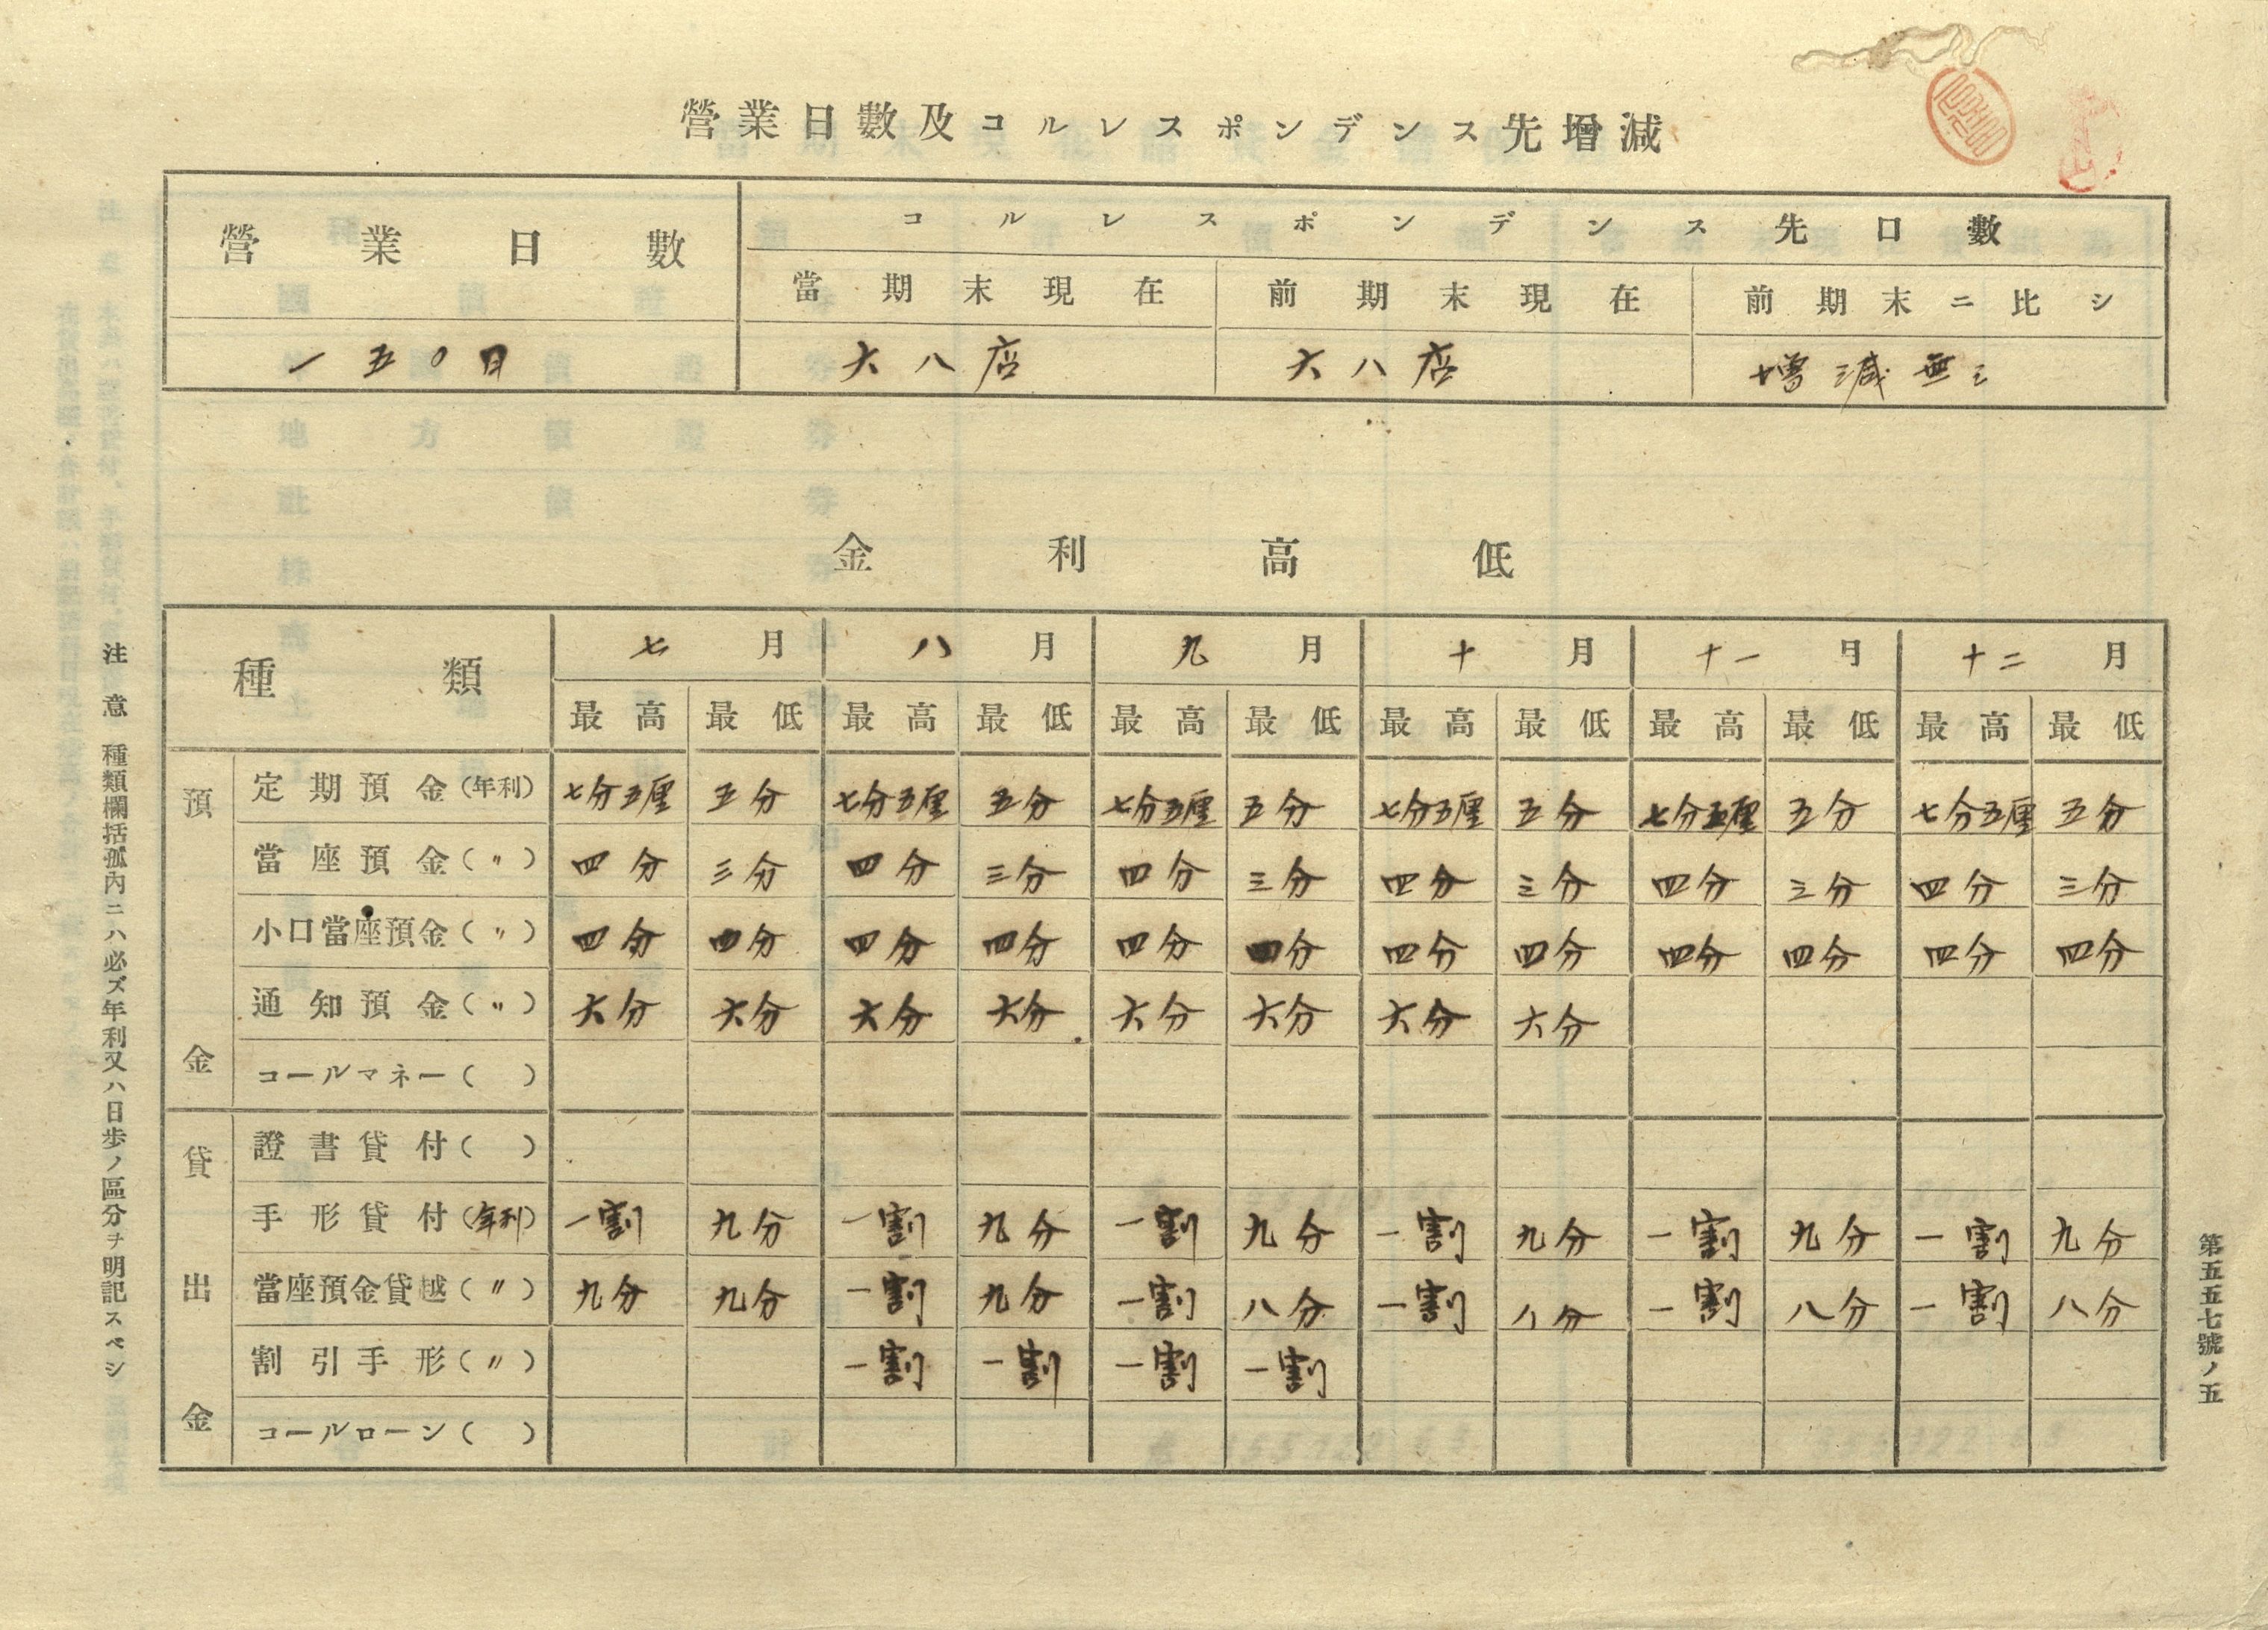 營業日數及コルレスポンデンス先增減
營業日數 コルレスポンデンス先口數
當期末現在 前期末現在 前期末ニ比シ
一五〇日 六八店 六八店 增減無シ
金利高低
種類 七月 八月 九月 十月 十一月 十二月
最高 最低 最高 最低 最高 最低 最高 最低 最高 最低 最高 最低
預金
定期預金(年利) 七分五厘 五分 七分五厘 五分 七分五厘 五分 七分五厘 五分 七分五厘 五分 七分五厘 五分
當座預金(〃) 四分 三分 四分 三分 四分 三分 四分 三分 四分 三分 四分 三分
小口當座預金(〃) 四分 四分 四分 四分 四分 四分 四分 四分 四分 四分 四分 四分
通知預金(〃) 六分 六分 六分 六分 六分 六分 六分 六分
コールマネー( )
貸出金
證書貸付( )
手形貸付(年利) 一割 九分 一割 九分 一割 九分 一割 九分 一割 九分 一割 九分
當座預金貸越(〃) 九分 九分 一割 九分 一割 八分 一割 八分 一割 八分 一割 八分
割引手形(〃) 一割 一割 一割 一割
コールローン( )
注意 種類欄括孤內ニハ必ズ年利又ハ日歩ノ區分ヲ明記スベシ
第五五七號ノ五